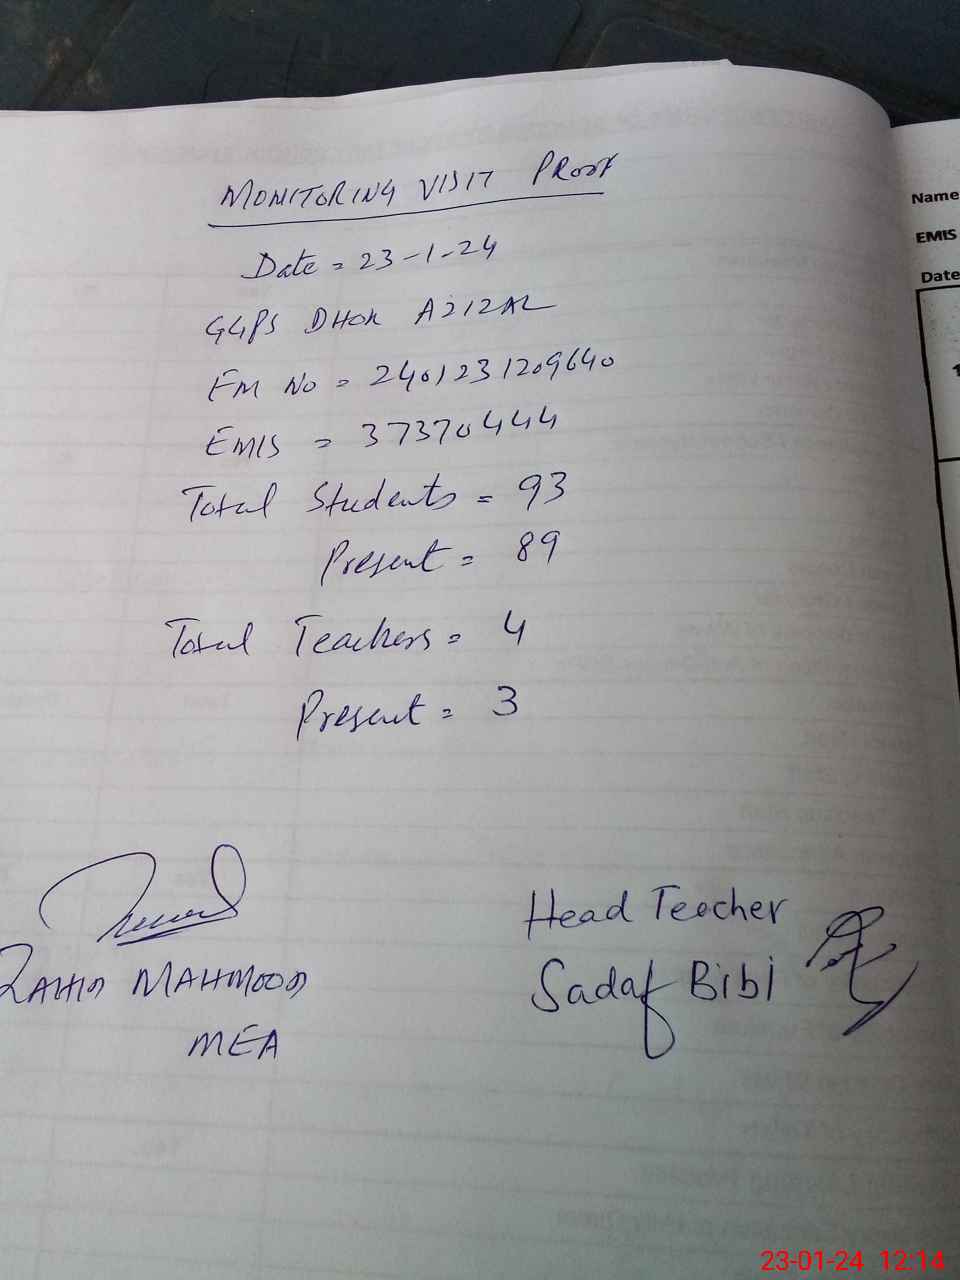 MONITORING VISIT PROOF
Date = 23-1-24
GGPS DHOK
EM No = 2401231209640
EMIS = 37370444
Total Students = 93
Present = 89
Total Teachers = 4
Present = 3
Head Teacher
ZAHID MAHMOOD
Sadaf Bibi
MEA
Name
EMIS
Date
1
23-01-24 12:14